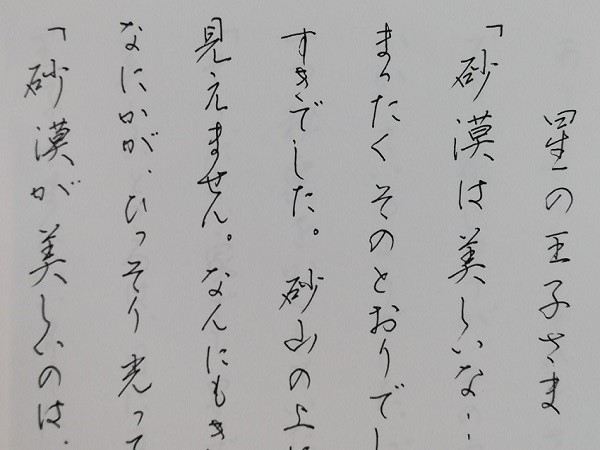 星の王子さま
「砂漠は美しいな…
まったくそのとおりでし
すきでした。砂山の上に
見えません。なんにもき
なにかが、ひっそり光って
「砂漠が美しいのは、